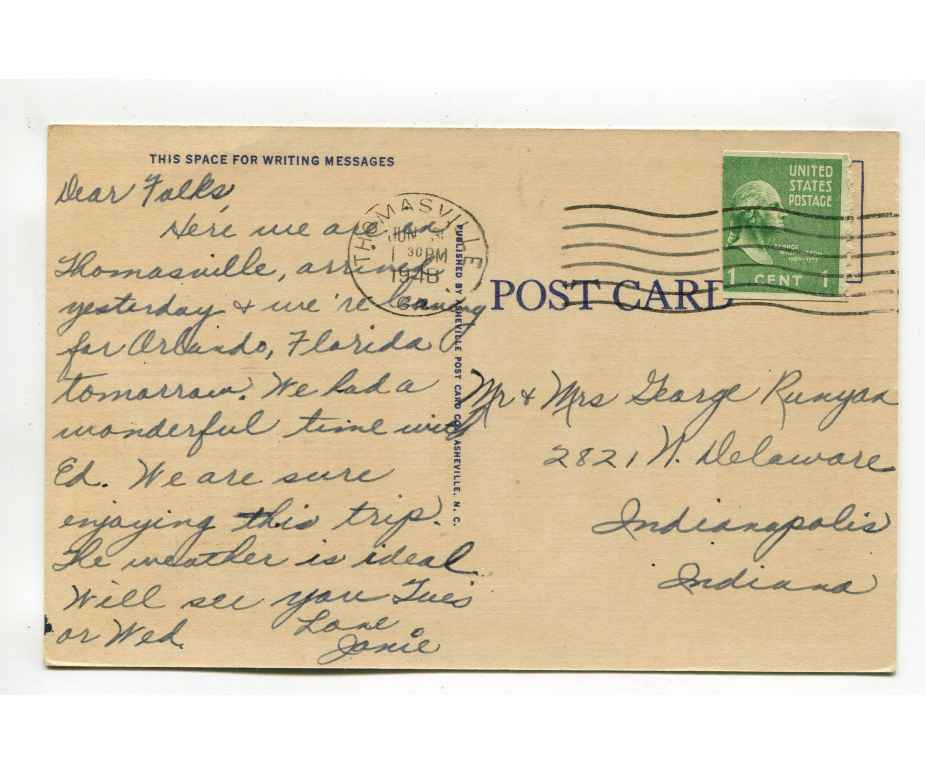 THIS SPACE FOR WRITING MESSAGES
Dear Folks,
Here we are in
Thomasville, arrived
yesterday & we're leaving
for Orlando, Florida
tomorrow. We had a
wonderful time with
Ed. We are sure
enjoying this trip.
The weather is ideal
Will see you Tues
or Wed.
Love
Janie
PUBLISHED BY ASHEVILLE POST CARD CO., ASHEVILLE, N. C.
THOMASVILLE
JUN
1 30 PM
1948
GA.
UNITED
STATES
POSTAGE
GEORGE
WASHINGTON
1 CENT 1
POST CARD
Mr & Mrs George Runyan
2821 N. Delaware
Indianapolis
Indiana